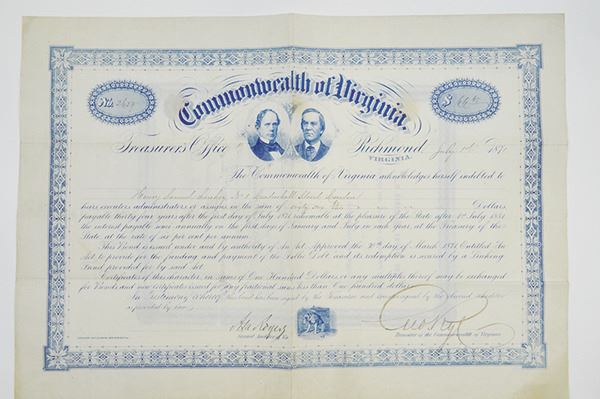 No.
Commonwealth of Virginia.
$
Treasurer's Office Richmond
VIRGINIA. July 1st 187
The Commonwealth of Virginia acknowledges herself indebted to
Henry Samuel No. 1 Street London
executors administrators or assigns in the sum of Dollars,
payable thirty four years after the first day of July 1871 renewable at the pleasure of the State after 1st July 1881
the interest payable semi annually on the first days of January and July in each year, at the Treasury of the
State, at the rate of six per cent per annum.
This Bond is issued under and by authority of An Act Approved the 30th day of March 1871 Entitled An
Act to provide for the funding and payment of the Public Debt and its redemption is secured by a Sinking
Fund provided for by said Act.
Certificates of this character, in sums of One Hundred Dollars, or any multiple thereof may be exchanged
for Bonds and new certificates issued for any fractional sums less than One hundred dollars.
In Testimony whereof this bond has been signed by the Treasurer and countersigned by the Second Auditor
as provided by law.
Asa Rogers
Second Auditor, Va.
Treasurer of the Commonwealth of Virginia